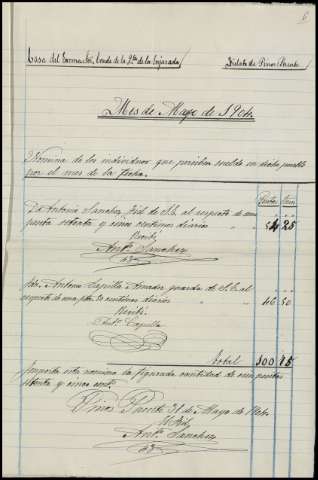 6
Casa del Excmo. Sr. Conde de la Qta. de la Enjarada
Fielato de Pinos Puente
Mes de Mayo de 1904
Nomina de los individuos que perciben sueldo en dicho
por el mes de la fecha.
Pesetas Cen
Dn. Antonio Sanchez Fiel de S.E. al respecto de una
peseta setenta y cinco centimos diarios " " 54 25
Recibí
Anto. Sanchez
Antonio Capilla Amador guarda de S.E. al
respecto de una pta. 50 centimos diarios " 46 50
Recibí
Anto. Capilla
total 100 75
Importa esta nomina la figurada cantidad de cien pesetas
setenta y cinco cents.
Pinos Puente 31 de Mayo de 1904
El Fiel
Anto. Sanchez